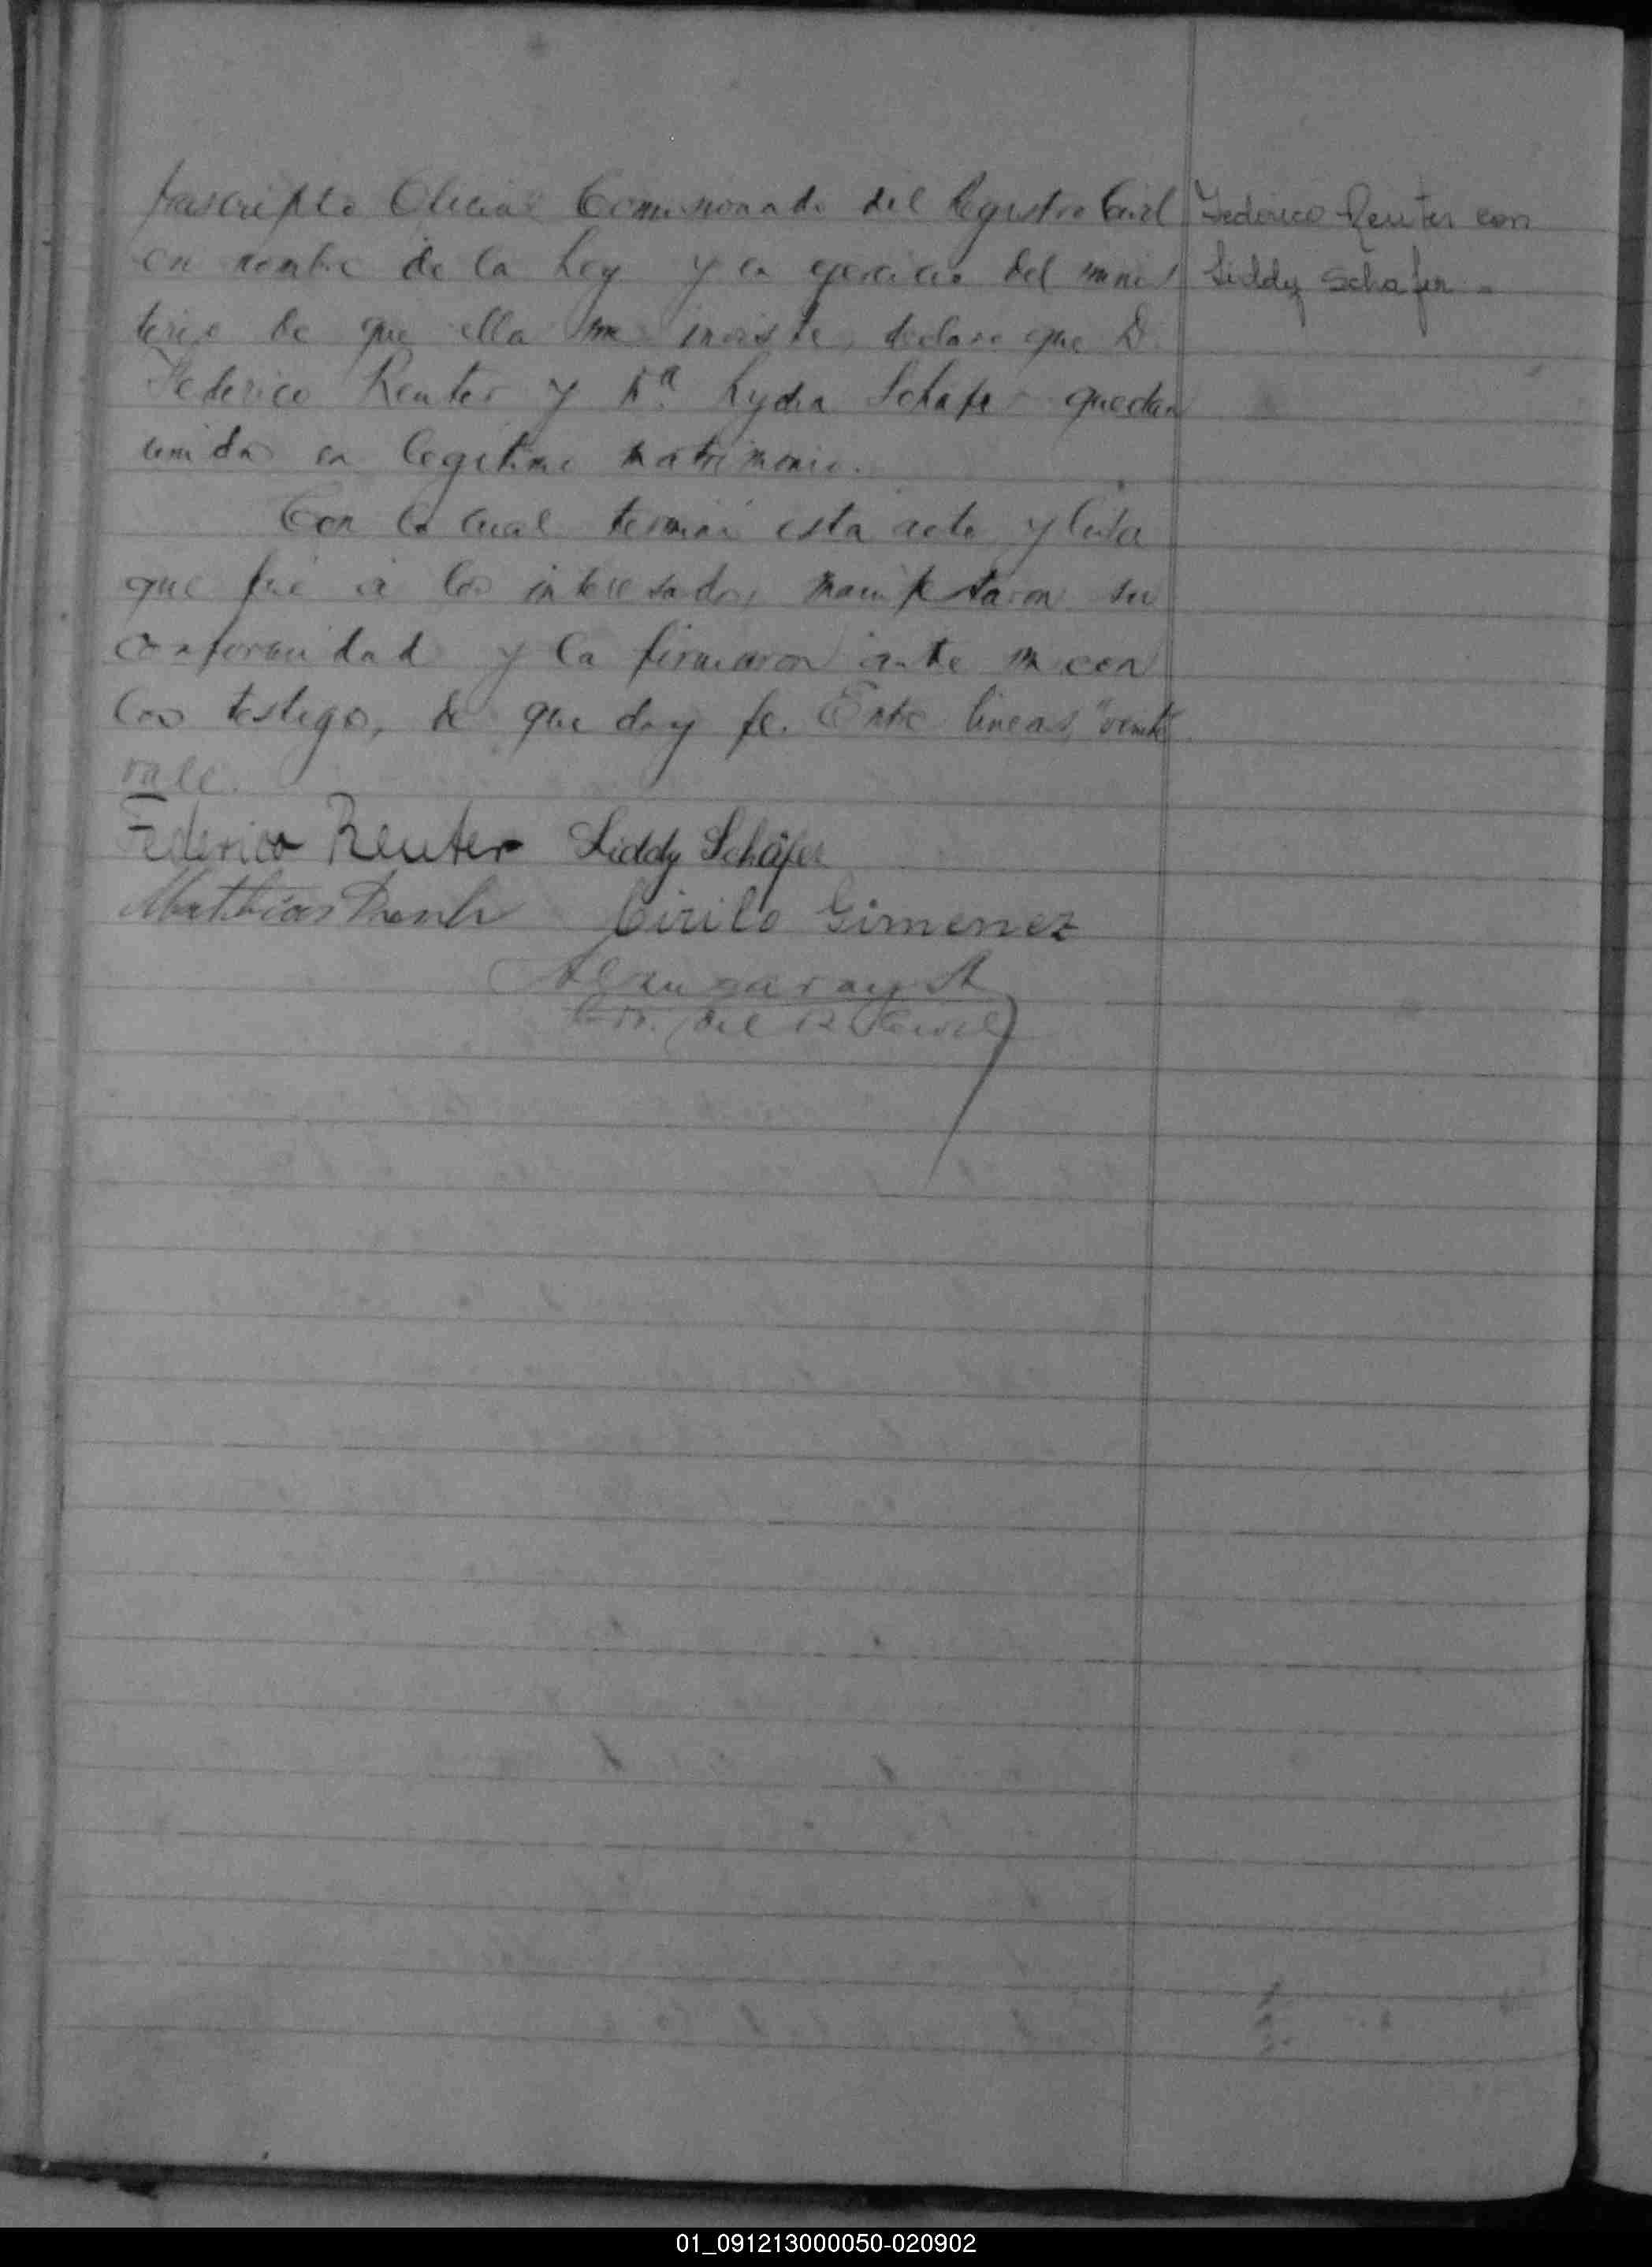 Oficial Comisionado del Registro Civil
en nombre de la Ley y en ejercicio del minis
terio de que ella me inviste, declaro que D.
Federico Reuter y Dª. Lydia Schafer quedan
unidos en legitimo matrimonio.
Con lo cual terminó esta acta y leida
que fué a los interesados, manifestaron su
conformidad y la firmaron ante mi con
los testigos, de que doy fe. Entre lineas, "veinte"
vale.
Federico Reuter con
Liddy Schafer -
Federico Reuter Liddy Schäfer
Mathias Cirilo Gimenez
del R. Civil
01_091213000050-020902